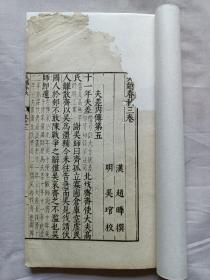 越春秋三卷
漢 趙曄撰
明 吳琯校
夫差內傳第五
十一年夫差北伐齊齊使大夫高
氏謝吳師曰齊孤立於國倉庫空虛民
人離散齊以吳為彊輔今未往告急而吳見伐請伏
國人於郊不敢陳戰爭之辭惟吳哀齊之不濫也吳
師即還